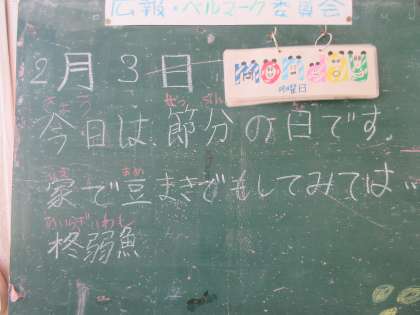 広報・ベルマーク委員会
2月3日
MONDAY
月曜日
きょう せつ ぶん
今日は節分の日です。
いえ まめ
家で豆まきでもしてみては…
ひいらぎいわし
柊弱魚